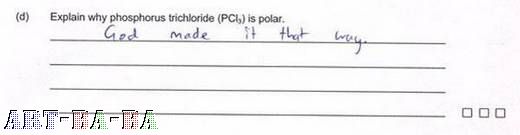 (d) Explain why phosphorus trichloride (PCl₃) is polar.
God made it that way.
ART-HA-HA